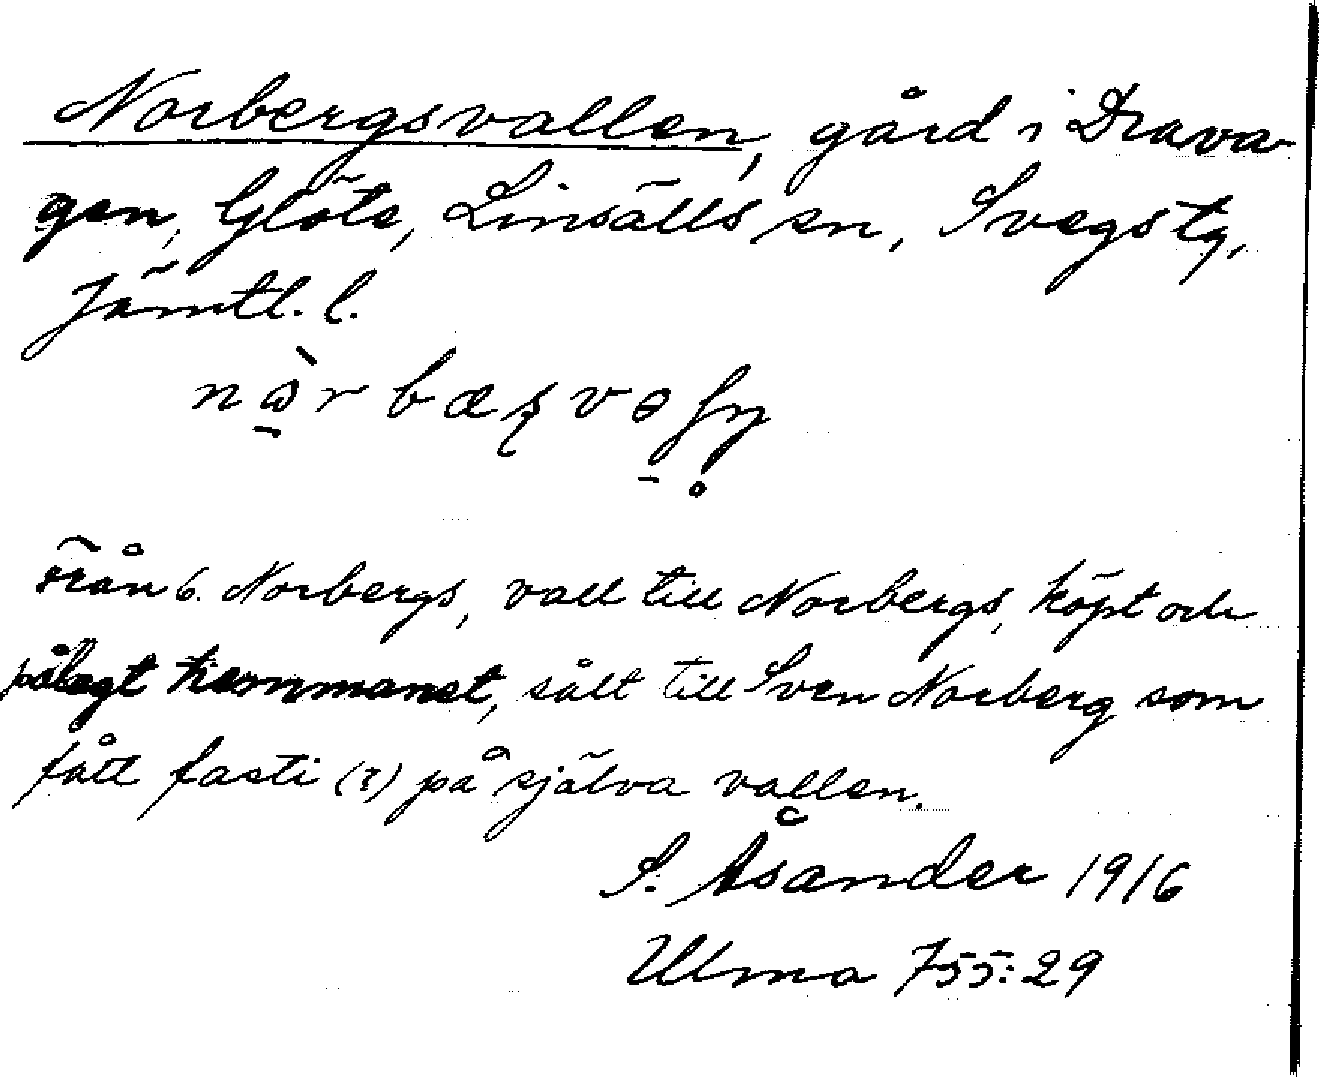 Norbergsvallen, gård i Drava-
gen, Glöte, Linsälls sn, Svegs tg,
Jämtl. l.
från b. Norbergs, vall till Norbergs, köpt och
pålagt hemmanet, sålt till Sven Norberg som
fått fasti (?) på själva vallen.
S. Åsander 1916
Ulma 755:29